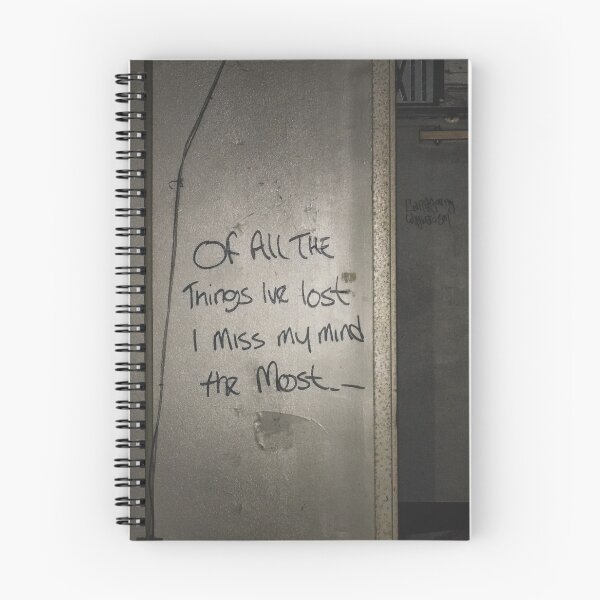 Of All The
Things Ive lost
I miss my mind
the Most..—
XII